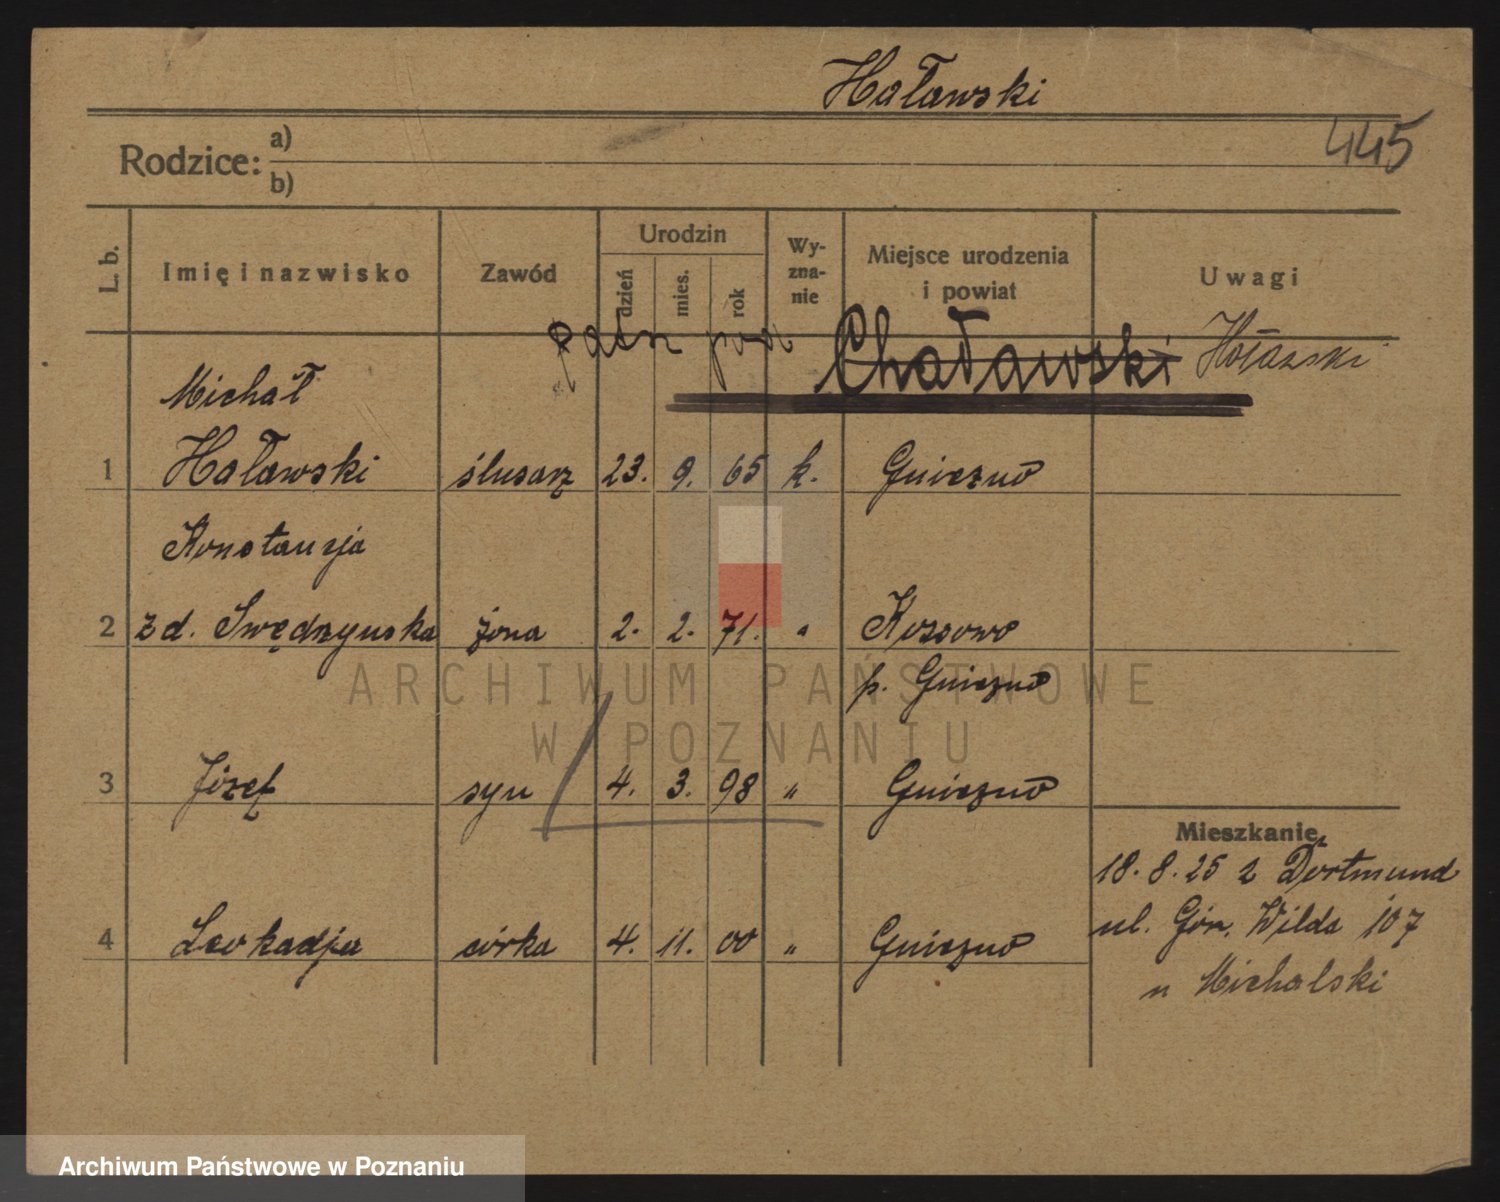 Haławski
445
Rodzice: a)
b)
L. b.
Imię i nazwisko
Zawód
Urodzin
dzień
mies.
rok
Wy-
zna-
nie
Miejsce urodzenia
i powiat
Uwagi
patrz pod Chaławski
Michał
1 Haławski ślusarz 23. 9. 65 k. Gniezno
Konstancja
2 zd. Swędrzynska żona 2. 2. 71. " Kossowo
p. Gniezno
3 Józef syn 4. 3. 98 " Gniezno
Mieszkanie
18.8.25 z Dortmund
4 Leokadja córka 4. 11. 00 " Gniezno
ul. Gór. Wilda 107
u Michalski
ARCHIWUM PAŃSTWOWE
W POZNANIU
Archiwum Państwowe w Poznaniu